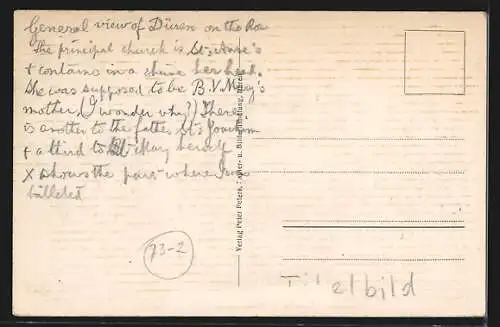 General view of Düren on the Roer
The principal church is St. Anne's
+ contains in a shrine her head.
She was supposed to be B.V. Mary's
mother, (I wonder why?) There
is another to the father St. Joachim
+ a third to St. Mary herself
X shows the part where I was
billeted
73-2
Verlag Peter Peters, Papier- u. Buchhandlung, Düren
Titelbild